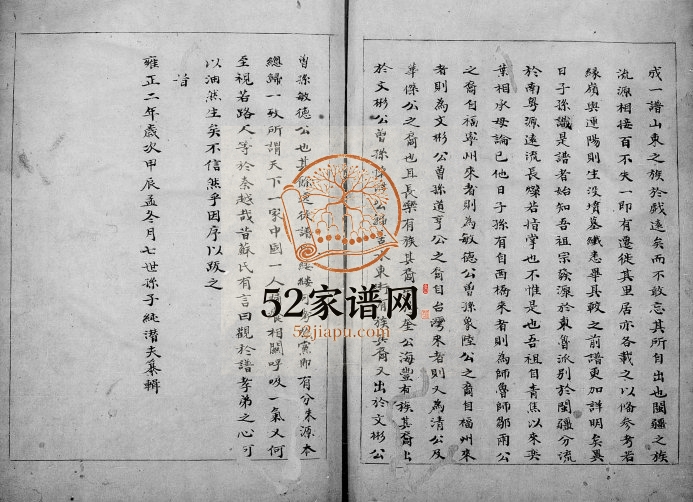 成一譜山東之族於戲遠矣而不敢忘其所自出也閩疆之族
流源相接百不失一即有遷徙其里居亦各載之以俻參考若
緣嶺與連陽則生沒墳墓纖悉畢具較之前譜更加詳明矣異
日子孫識是譜者始知吾祖宗發源於東魯派別於閩疆分流
於南粤源遠流長燦若指掌也不惟是也吾祖自青焦以來奕
葉相承毋論已他日子孫有自西橋來者則為師魯師鄒兩公
之裔自福寧州來者則為敏德公曾孫象陸公之裔自福州來
者則為文彬公曾孫道亨公之裔自台灣來者則又為清公及
華傑公之裔也且長樂有族其裔 座公海豐有族其裔
於文彬公曾孫 公 水東 有族其裔又出於文彬公
曾孫敏德公也其餘 徙譜 縷縷 黨即有分朱源本
總歸一致所謂天下一家中國一人 相關呼吸一氣又何
至視若路人等於秦越哉昔蘇氏有言曰觀於譜孝弟之心可
以油然生矣不信然乎因序以跋之
旹
雍正二年歲次甲辰孟冬月七世孫子純潛夫纂輯
52家谱网
52jiapu.com